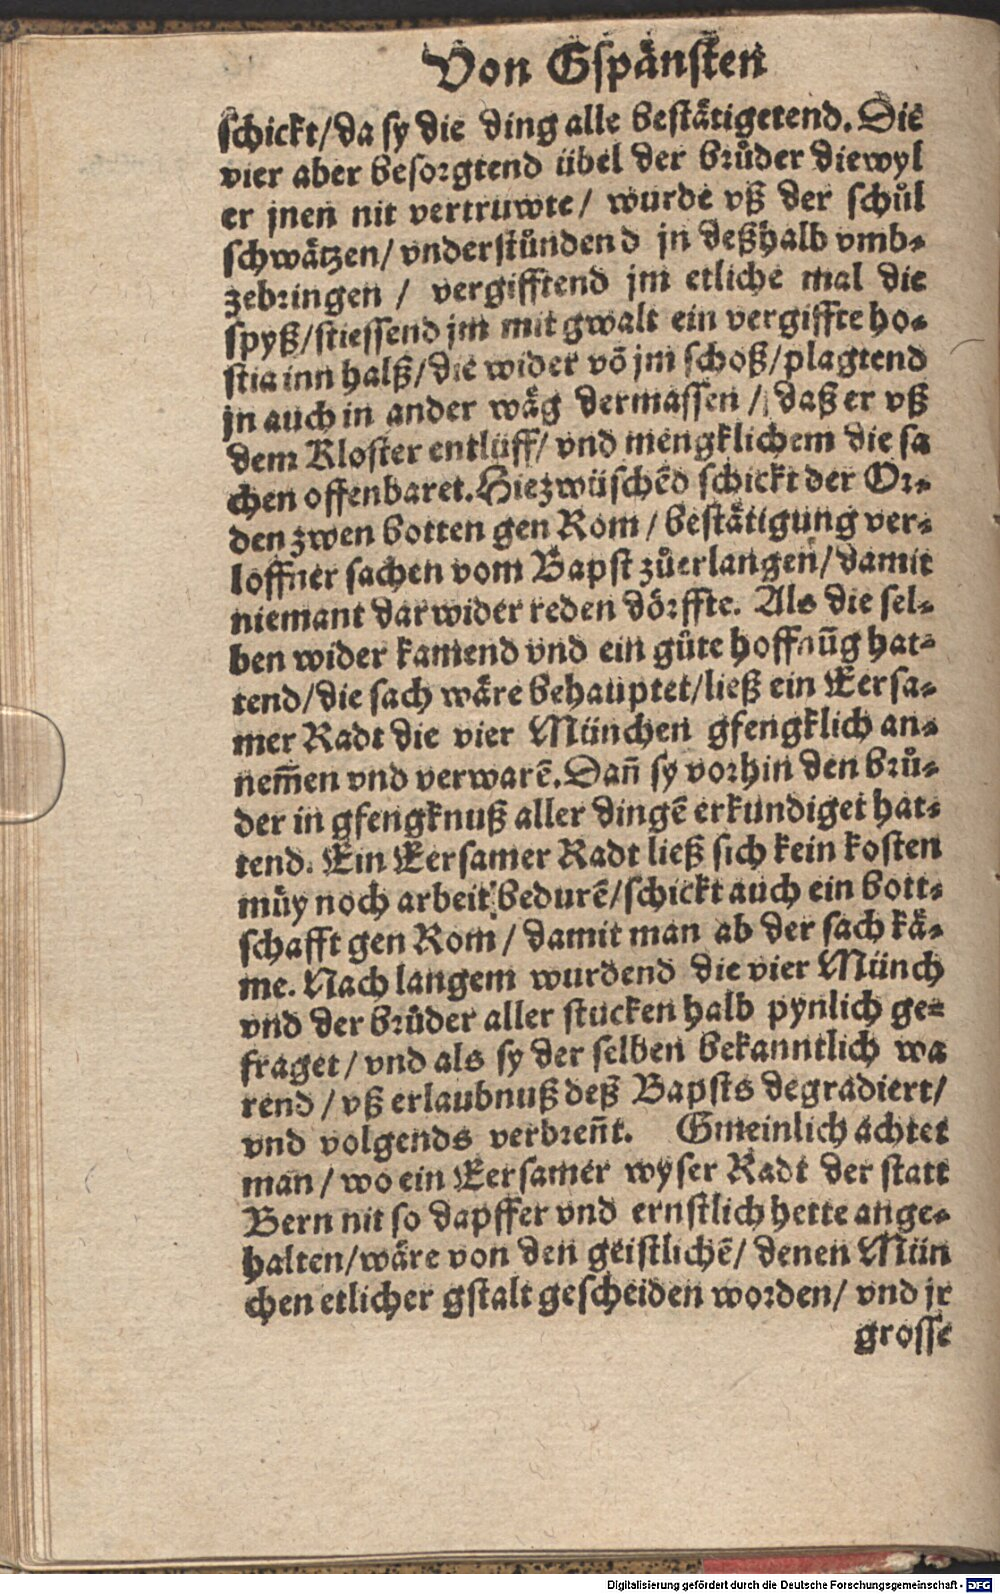 Von Gspänsten
schickt/da sy die ding alle bestätigetend. Die
vier aber besorgtend übel der brůder diewyl
er jnen nit vertruwte/ wurde vß der schůl
schwätzen/ vnderstůndend jn deßhalb vmb⸗
zebringen / vergifftend jm etliche mal die
spyß/stiessend jm mit gwalt ein vergiffte ho⸗
stia inn halß/die wider võ jm schoß/plagtend
jn auch in ander wäg dermassen / daß er vß
dem Kloster entlüff/ vnd mengklichem die sa
chen offenbaret. Hiezwüschẽd schickt der Or⸗
den zwen botten gen Rom / bestätigung ver⸗
loffner sachen vom Bapst zůerlangen/ damit
niemant darwider reden dörffte. Als die sel⸗
ben wider kamend vnd ein gůte hoffnũg hat⸗
tend/die sach wäre behauptet/ließ ein Eersa⸗
mer Radt die vier München gfengklich an⸗
nem̃en vnd verwarẽ. Dañ sy vorhin den brů⸗
der in gfengknuß aller dingẽ erkundiget hat⸗
tend. Ein Eersamer Radt ließ sich kein kosten
müy noch arbeit bedurẽ/schickt auch ein bott⸗
schafft gen Rom / damit man ab der sach kä⸗
me. Nach langem wurdend die vier Münch
vnd der brůder aller stucken halb pynlich ge⸗
fraget/ vnd als sy der selben bekanntlich wa
rend / vß erlaubnuß deß Bapsts degradiert/
vnd volgends verbreñt. Gmeinlich achtet
man / wo ein Eersamer wyser Radt der statt
Bern nit so dapffer vnd ernstlich hette ange⸗
halten/wäre von den geistlichẽ/ denen Mün
chen etlicher gstalt gescheiden worden/ vnd jr
grosse
Digitalisierung gefördert durch die Deutsche Forschungsgemeinschaft - DFG